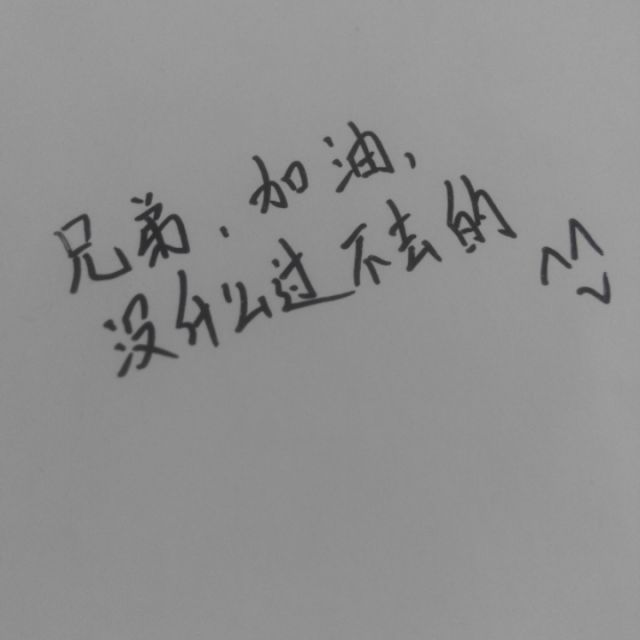 兄弟，加油，
没什么过不去的